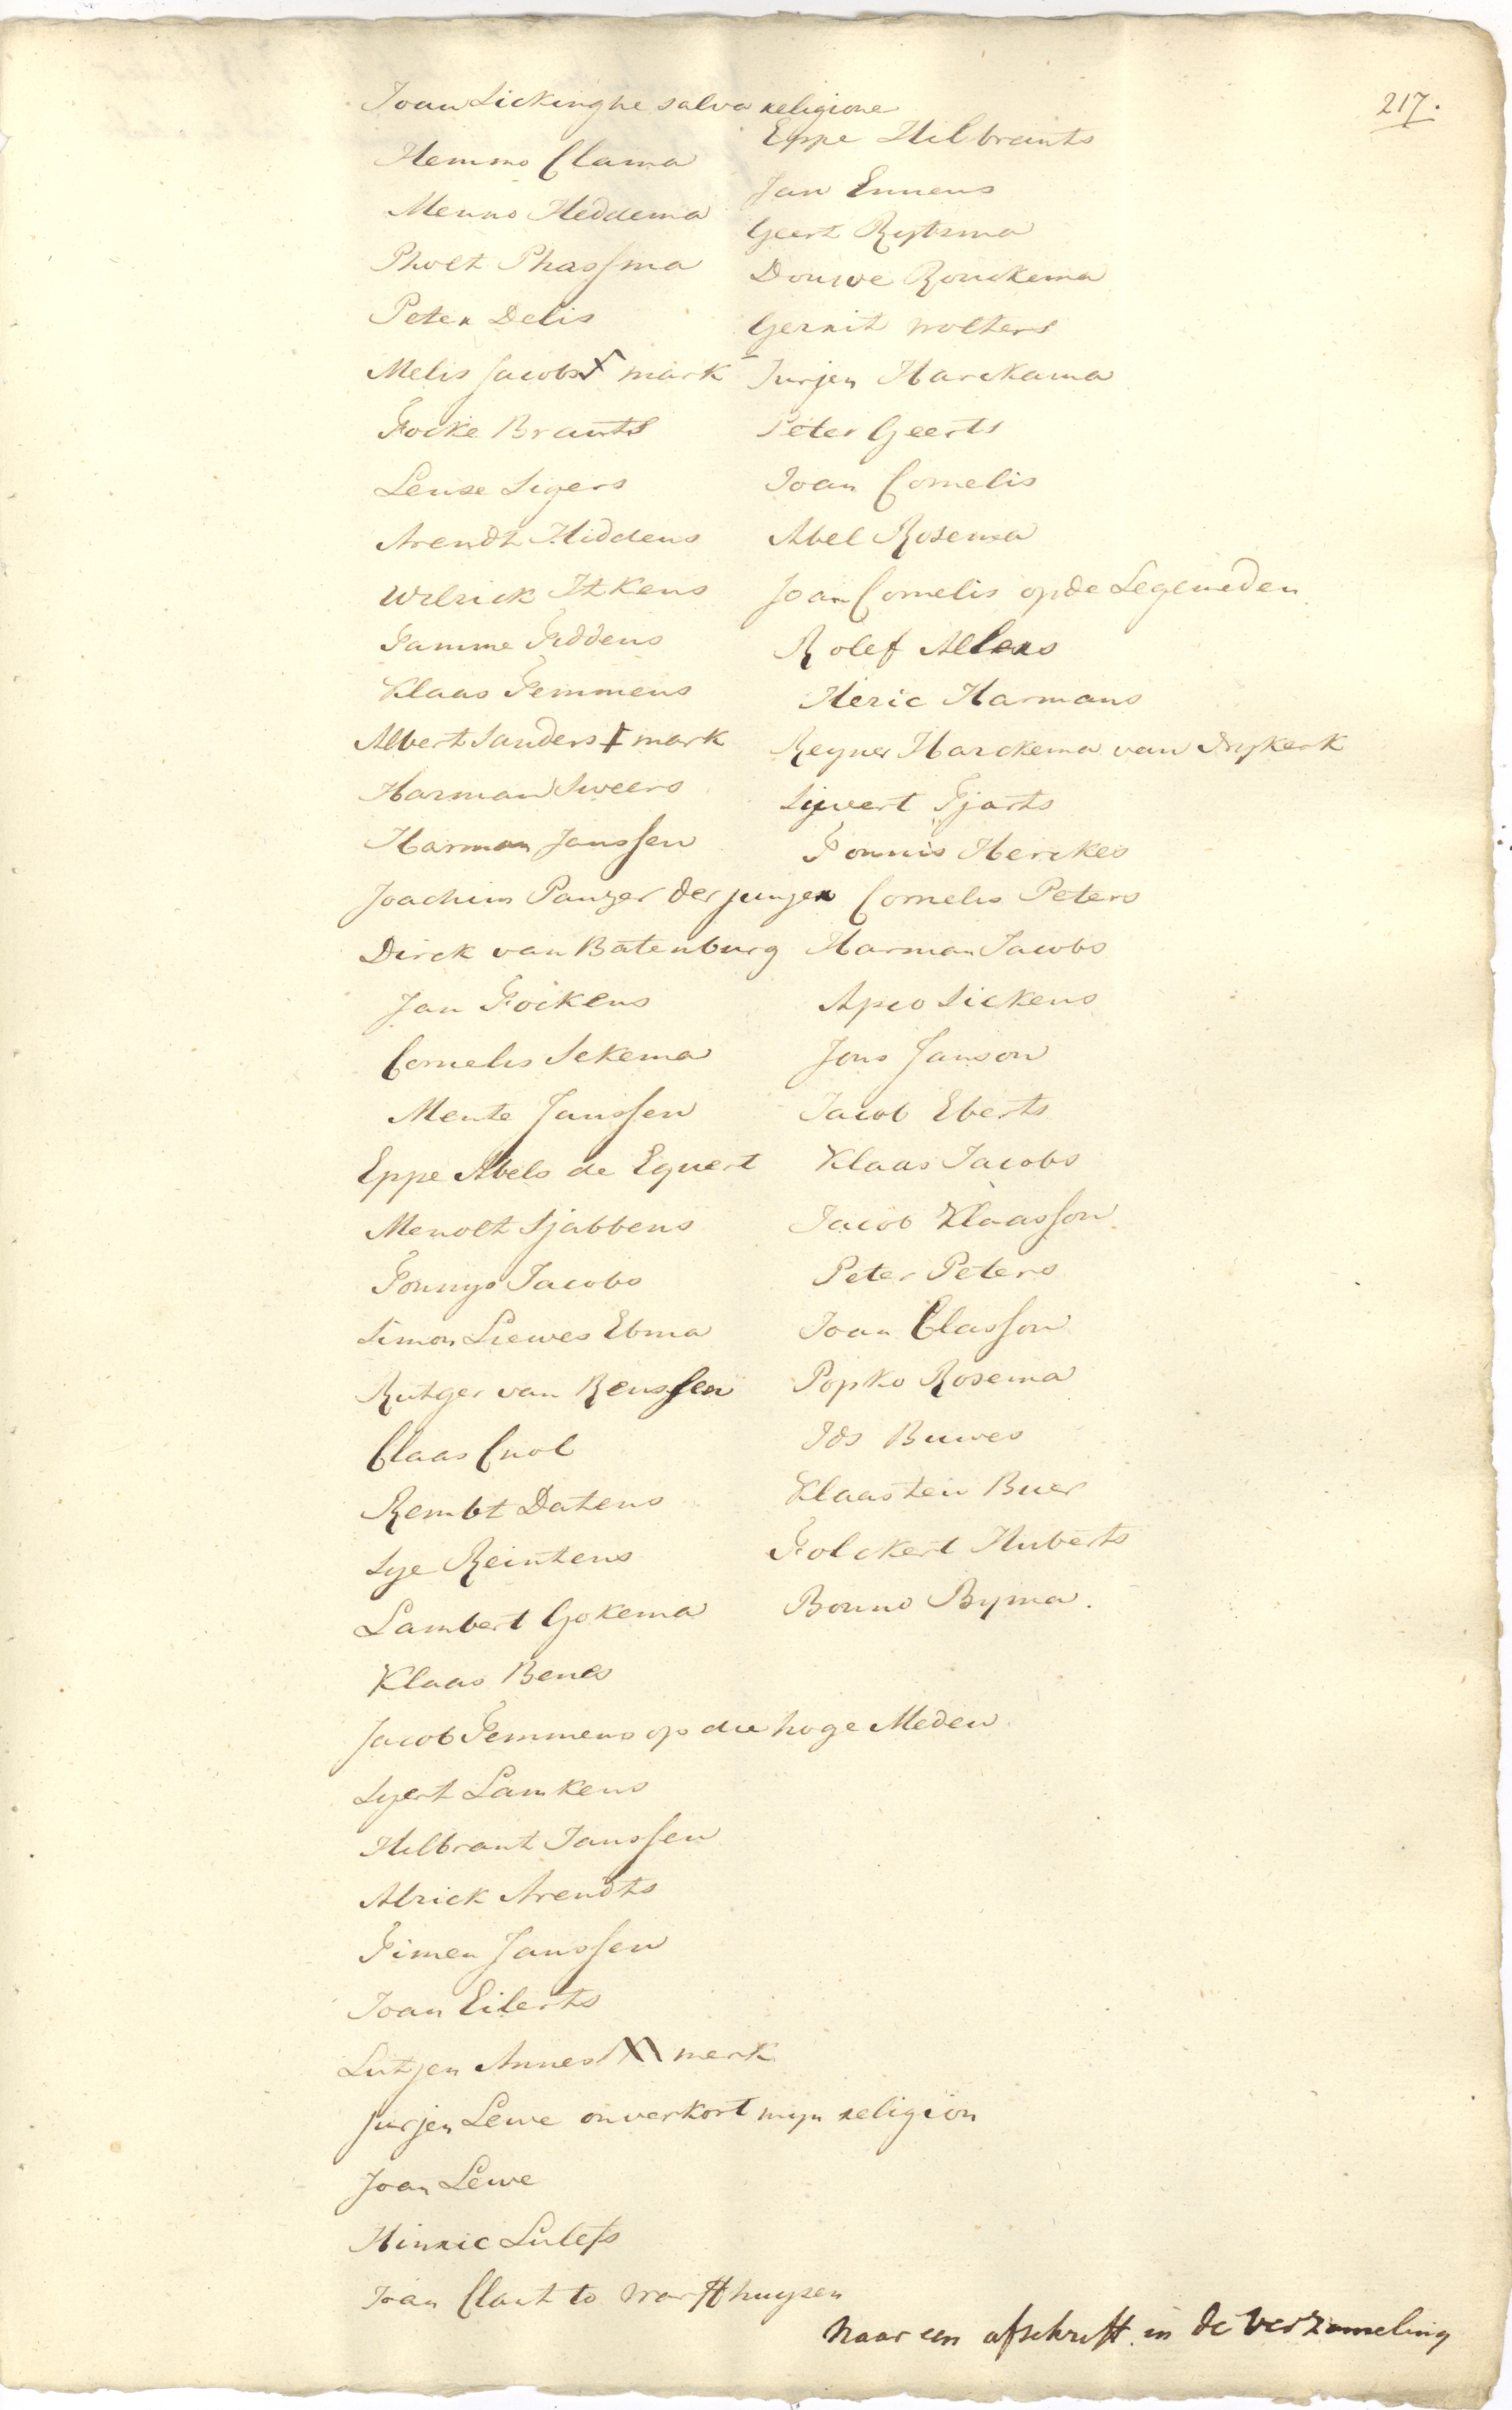 217.
Joan Sickinghe salva religione
Hemmo Clama
Menno Heddema
Pholt Phassma
Peter Delis
Melis Jacobs X mark
Focke Brants
Leuse Sigers
Arendt Hiddens
Wilrick Itkens
Tamme Fiddens
Klaas Temmens
Albert Sanders X mark
Harman Sweers
Harman Janssen
Joachim Panzer der junger
Dirck van Batenburg
Jan Fockens
Cornelis Sekema
Mente Janssen
Eppe Abels de Equert
Menolt Sjabbens
Tonnys Jacobs
Simon Liewes Ebma
Rutger van Renssen
Claas Cnol
Rembt Datens
Sye Reintens
Lambert Gokema
Klaas Benes
Jacob Temmens op die hoge Meden
Syert Lamkens
Hilbrant Janssen
Alrick Arendts
Timen Janssen
Joan Eilerts
Lutjen Annes merk
Jurjen Lewe onverkort myn religion
Joan Lewe
Hinric Lulefs
Joan Clant to Warffhuysen
Eppe Hilbrants
Jan Ennens
Geert Rytsma
Douwe Ronckema
Gerrit Wolters
Jurjen Harckama
Peter Geerts
Joan Cornelis
Abel Rosema
Joan Cornelis op de Legemeden
Rolef Allers
Heric Harmans
Reyner Harckema van Nykerk
Sijwert Tjarts
Tonnis Herckes
Cornelis Peters
Harman Jacobs
Apco Sickens
Jons Janson
Jacob Eberts
Klaas Jacobs
Jacob Klaasson
Peter Peters
Joan Classon
Popko Rosema
Ids Buwes
Klaas ten Buer
Folckert Huberts
Bonno Byma.
Naar een afschrift in de verzameling